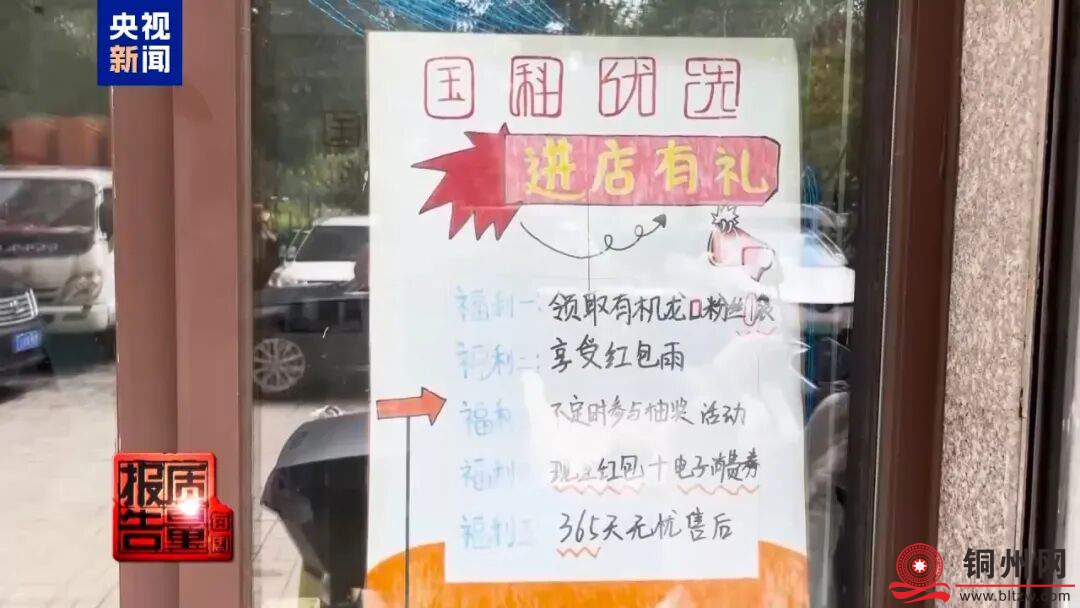 央视
新闻
国科优选
进店有礼
福利一:领取有机龙口粉丝1袋
福利二:享受红包雨
福利 不定时参与抽奖活动
福利 现金红包+电子消费券
福利 365天无忧售后
质量
报告
铜州网
www.bltzw.com